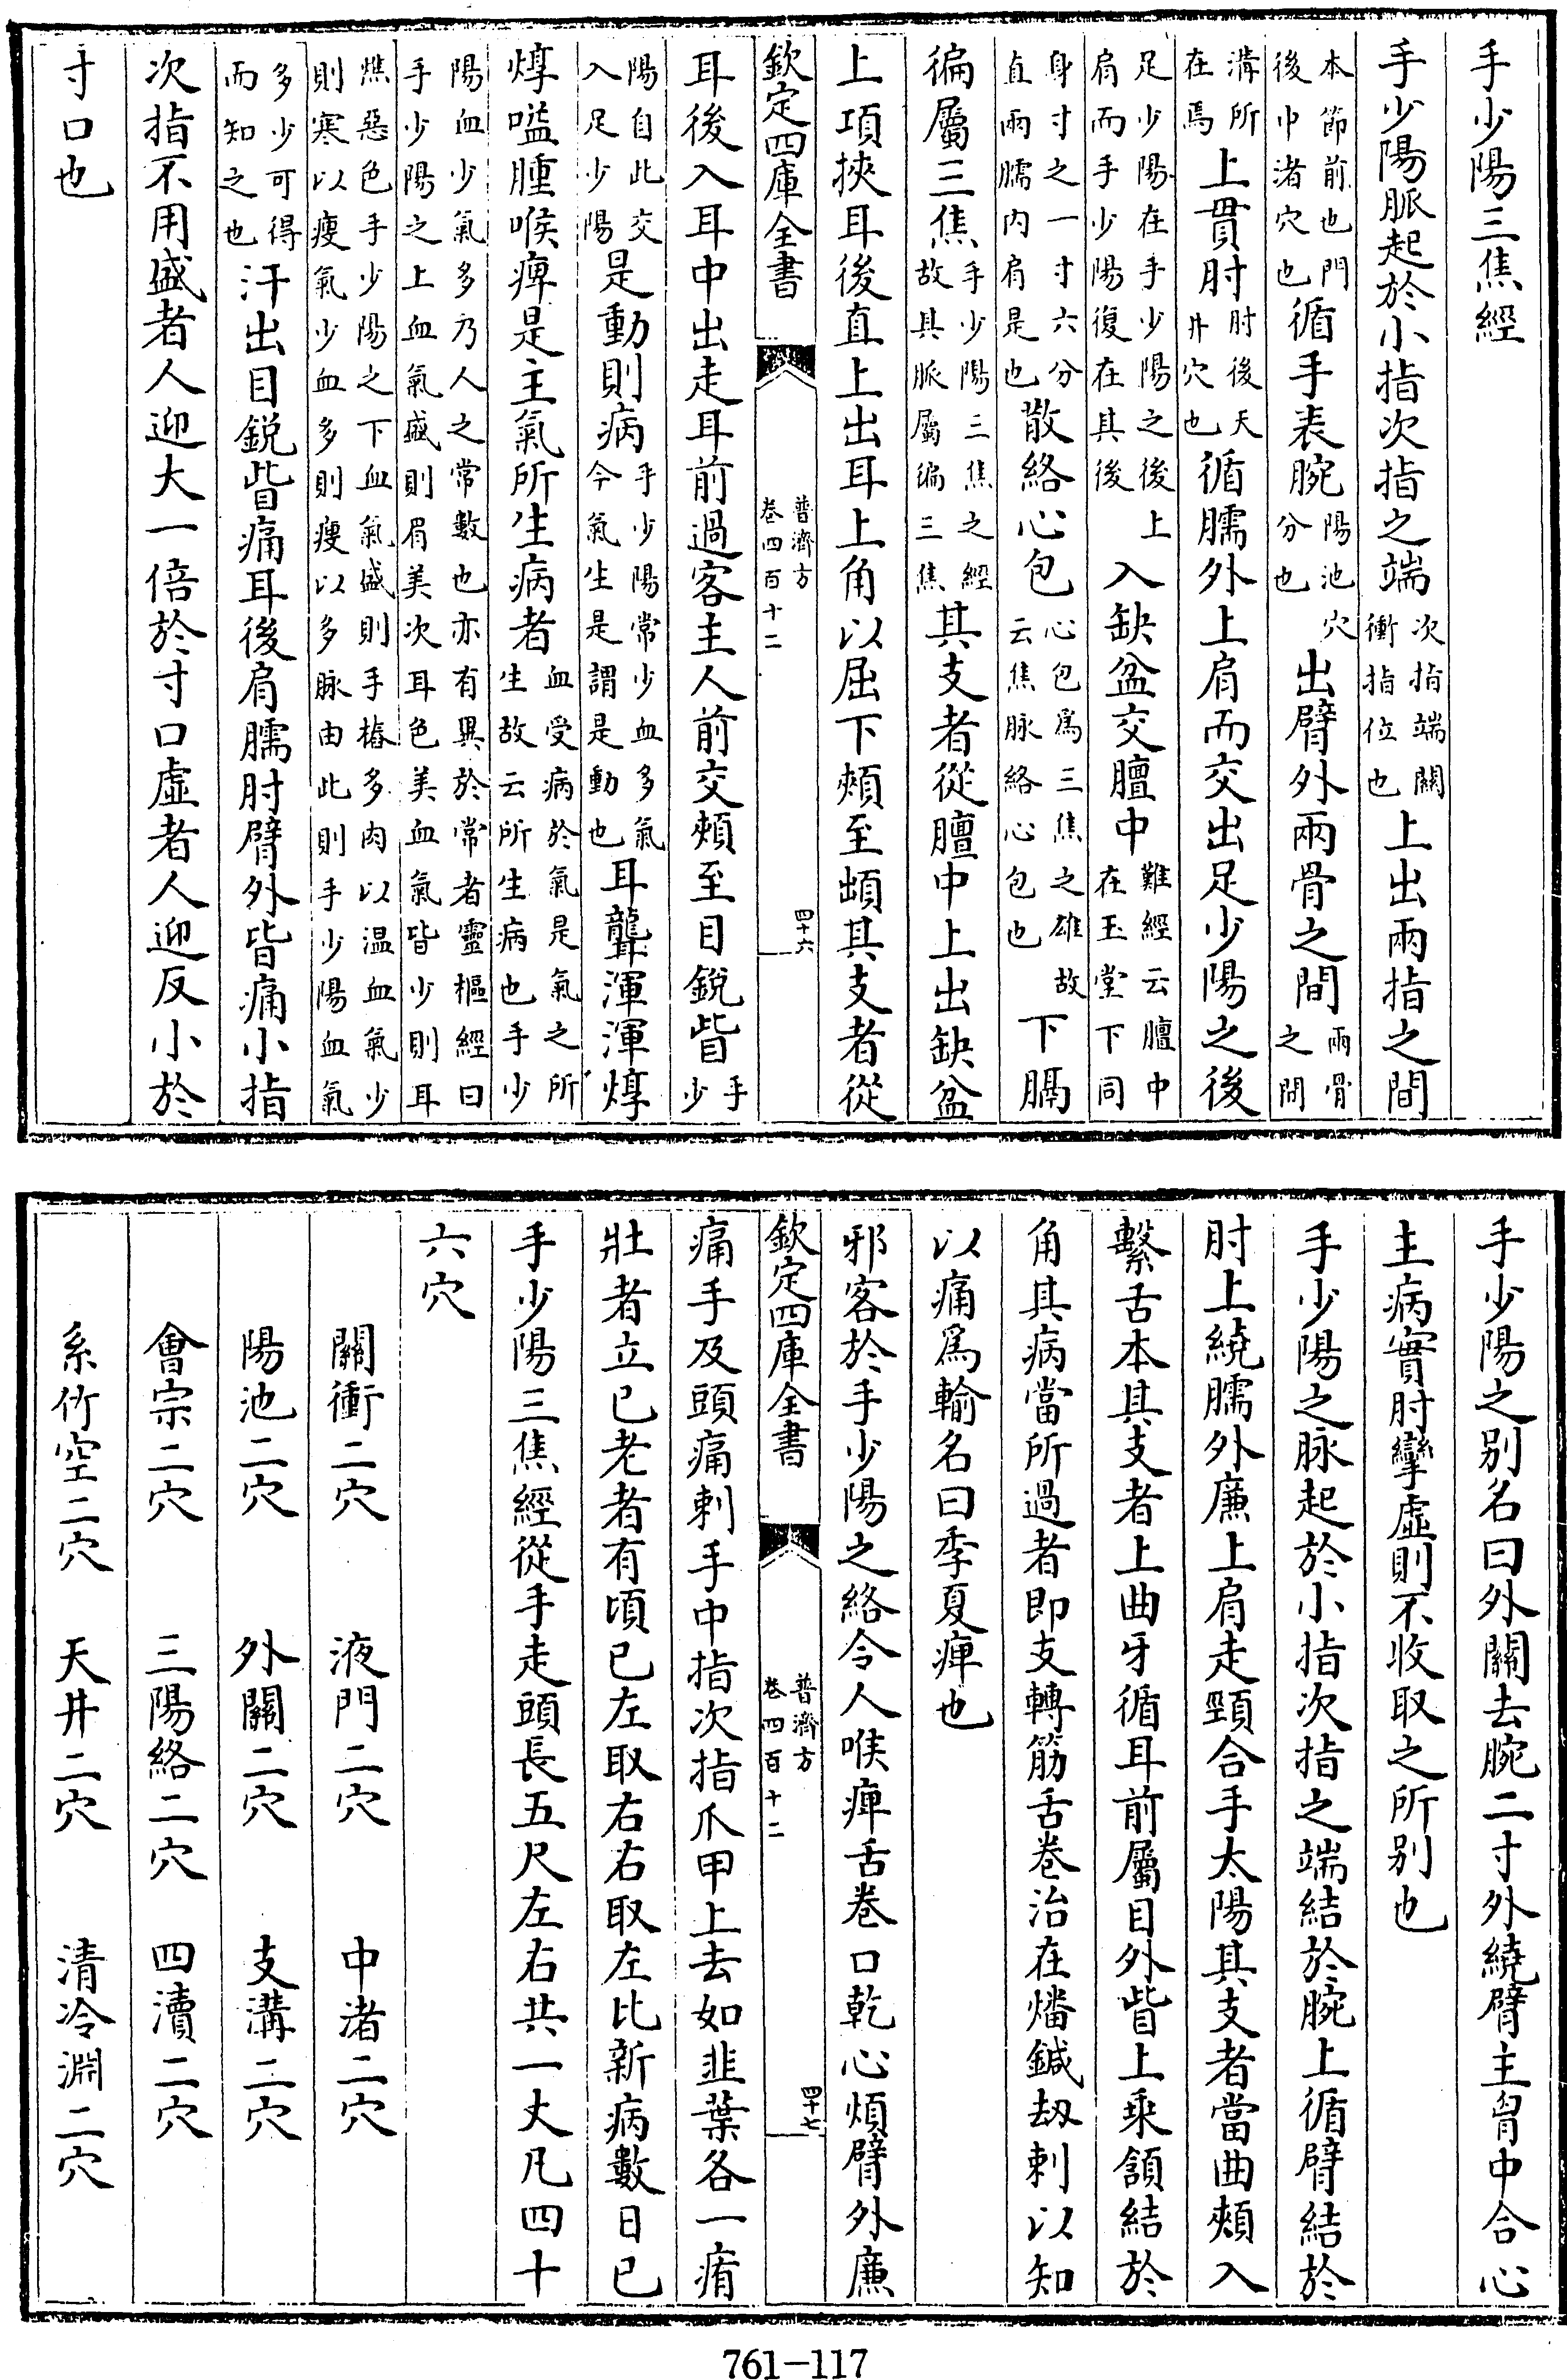 手少陽三焦經
手少陽脈起於小指次指之端次指端關衝指位也上出兩指之間
本節前也門後中渚穴也循手表腕陽池穴分也出臂外兩骨之間兩骨之間
溝所在焉上貫肘肘後天井穴也循臑外上肩而交出足少陽之後
足少陽在手少陽之後上肩而手少陽復在其後入缺盆交膻中難經云膻中在玉堂下同
身寸之一寸六分直兩臑内肩是也散絡心包心包爲三焦之雄故云焦脉絡心包也下膈
徧屬三焦手少陽三焦之經故具脈屬徧三焦其支者從膻中上出缺盆
上項挾耳後直上出耳上角以屈下頰至䪼其支者從
欽定四庫全書 普濟方 卷四百十二 四十六
耳後入耳中出走耳前過客主人前交頰至目銳眥手少
陽自此交入足少陽是動則病手少陽常少血多氣今氣生是謂是動也耳聾渾渾焞
焞嗌腫喉痺是主氣所生病者血受病於氣是氣之所生故云所生病也手少
陽血少氣多乃人之常數也亦有異於常者靈樞經曰手少陽之上血氣盛則眉美次耳色美血氣皆少則耳
燋惡色手少陽之下血氣盛則手樁多肉以温血氣少則寒以瘦氣少血多則瘦以多脉由此則手少陽血氣
多少可得而知之也汗出目銳眥痛耳後肩臑肘臂外皆痛小指
次指不用盛者人迎大一倍於寸口虛者人迎反小於
寸口也
手少陽之别名曰外關去腕二寸外繞臂主胷中合心
主病實肘攣虛則不收取之所别也
手少陽之脉起於小指次指之端結於腕上循臂結於
肘上繞臑外廉上肩走頸合手太陽其支者當曲頰入
繫舌本其支者上曲牙循耳前屬目外眥上乘頷結於
角其病當所過者即支轉筋舌卷治在燔鍼刼刺以知
以痛爲輸名曰季夏痺也
邪客於手少陽之絡令人喉痺舌卷口乾心煩臂外廉
欽定四庫全書 普濟方 卷四百十二 四十七
痛手及頭痛刺手中指次指爪甲上去如韭葉各一痏
壯者立已老者有頃已左取右右取左此新病數日已
手少陽三焦經從手走頭長五尺左右共一丈凡四十
六穴
關衝二穴 液門二穴 中渚二穴
陽池二穴 外關二穴 支溝二穴
會宗二穴 三陽絡二穴 四瀆二穴
糸竹空二穴 天井二穴 清冷淵二穴
761-117